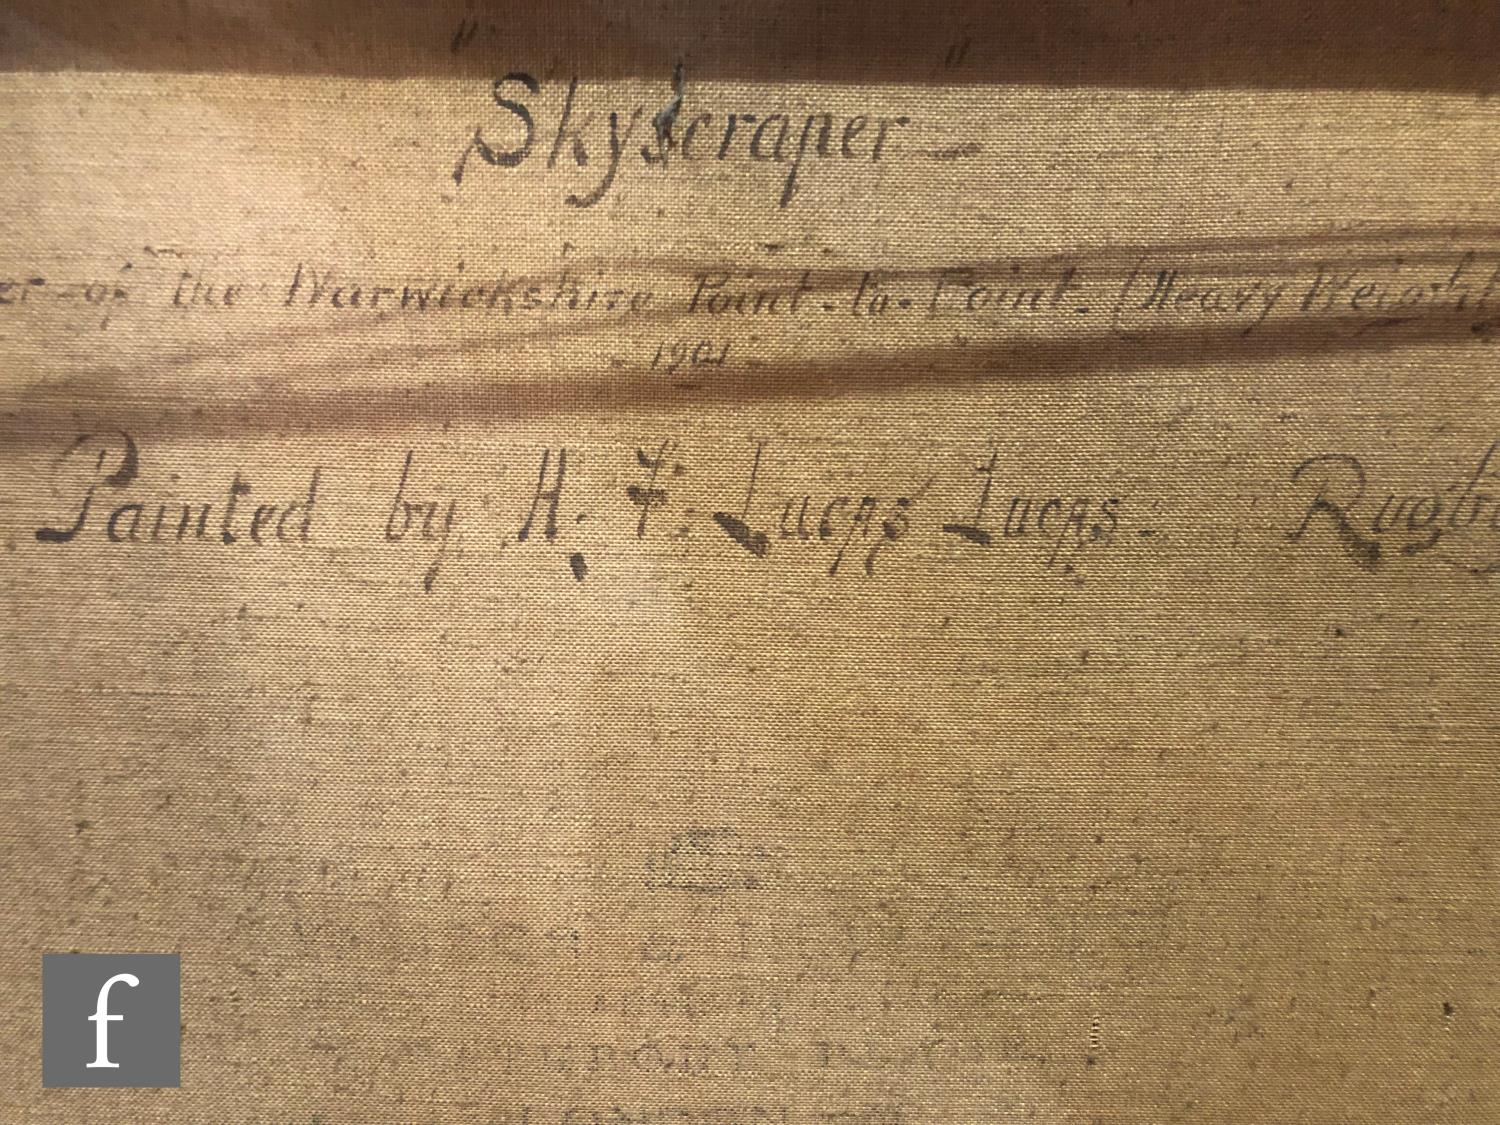 " "
Skyscraper
er of the Warwickshire Point-to-Point. (Heavy Weight
- 1901 -
Painted by H. F. Lucas Lucas. Rugby
LONDON
f